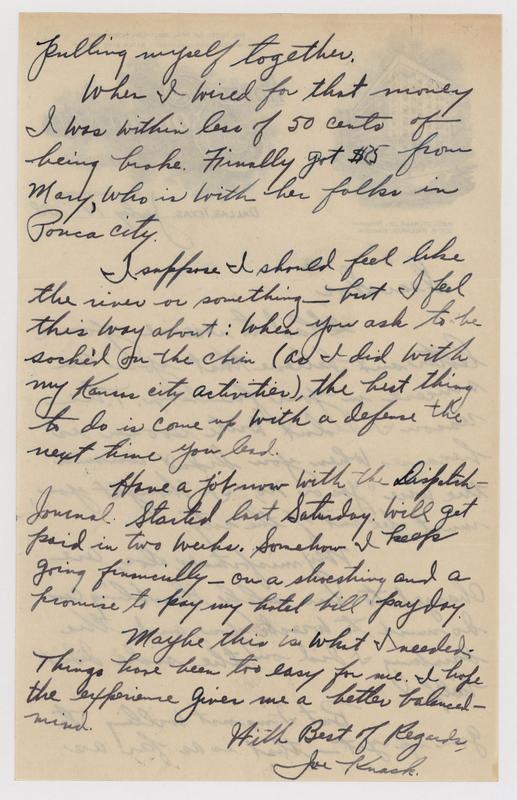 pulling myself together.
When I wired for that money
I was within less of 50 cents of
being broke. Finally got $5 from
Mary, who is with her folks in
Ponca city.
I suppose I should feel like
the river or something — but I feel
this way about: When you ask to be
socked on the chin (as I did with
my Kansas city activities), the best thing
to do is come up with a defense the
next time you lead.
Have a job now with the Dispatch-
Journal. Started last Saturday. Will get
paid in two weeks. Somehow I keeps
going finincially — on a shoestring and a
promise to pay my hotel bill payday.
Maybe this is what I needed.
Things have been too easy for me. I hope
the experience gives me a better balanced-
mind.
With Best of Regards,
Joe Knack.